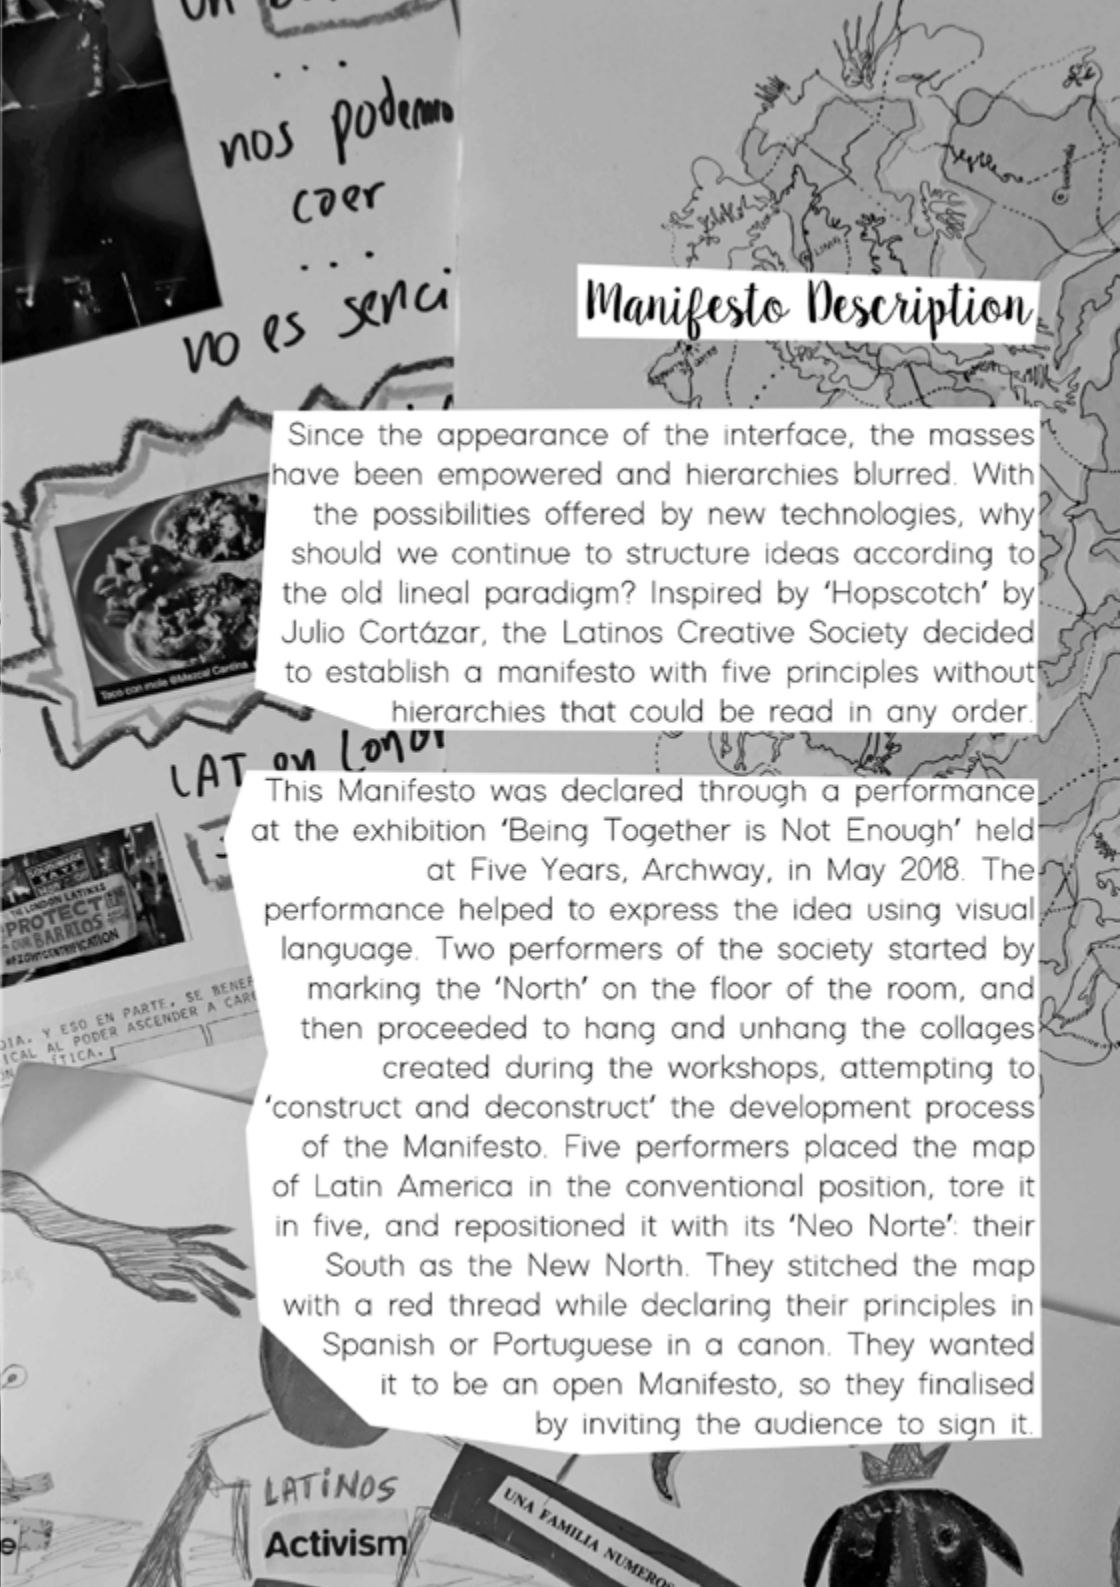 nos podemo
caer
...
no es senci
Manifesto Description
Since the appearance of the interface, the masses
have been empowered and hierarchies blurred. With
the possibilities offered by new technologies, why
should we continue to structure ideas according to
the old lineal paradigm? Inspired by ‘Hopscotch’ by
Julio Cortázar, the Latinos Creative Society decided
to establish a manifesto with five principles without
hierarchies that could be read in any order.
Taco con mole @Mezcal Cantina
LAT en Londr
This Manifesto was declared through a performance
at the exhibition ‘Being Together is Not Enough’ held
at Five Years, Archway, in May 2018. The
performance helped to express the idea using visual
language. Two performers of the society started by
marking the ‘North’ on the floor of the room, and
then proceeded to hang and unhang the collages
created during the workshops, attempting to
‘construct and deconstruct’ the development process
of the Manifesto. Five performers placed the map
of Latin America in the conventional position, tore it
in five, and repositioned it with its ‘Neo Norte’: their
South as the New North. They stitched the map
with a red thread while declaring their principles in
Spanish or Portuguese in a canon. They wanted
it to be an open Manifesto, so they finalised
by inviting the audience to sign it.
PROTECT
OUR BARRIOS
DIA. Y ESO EN PARTE. SE BENEF
ICAL AL PODER ASCENDER A CAR
ÍTICA.
LATINOS
Activism
UNA FAMILIA NUMEROS